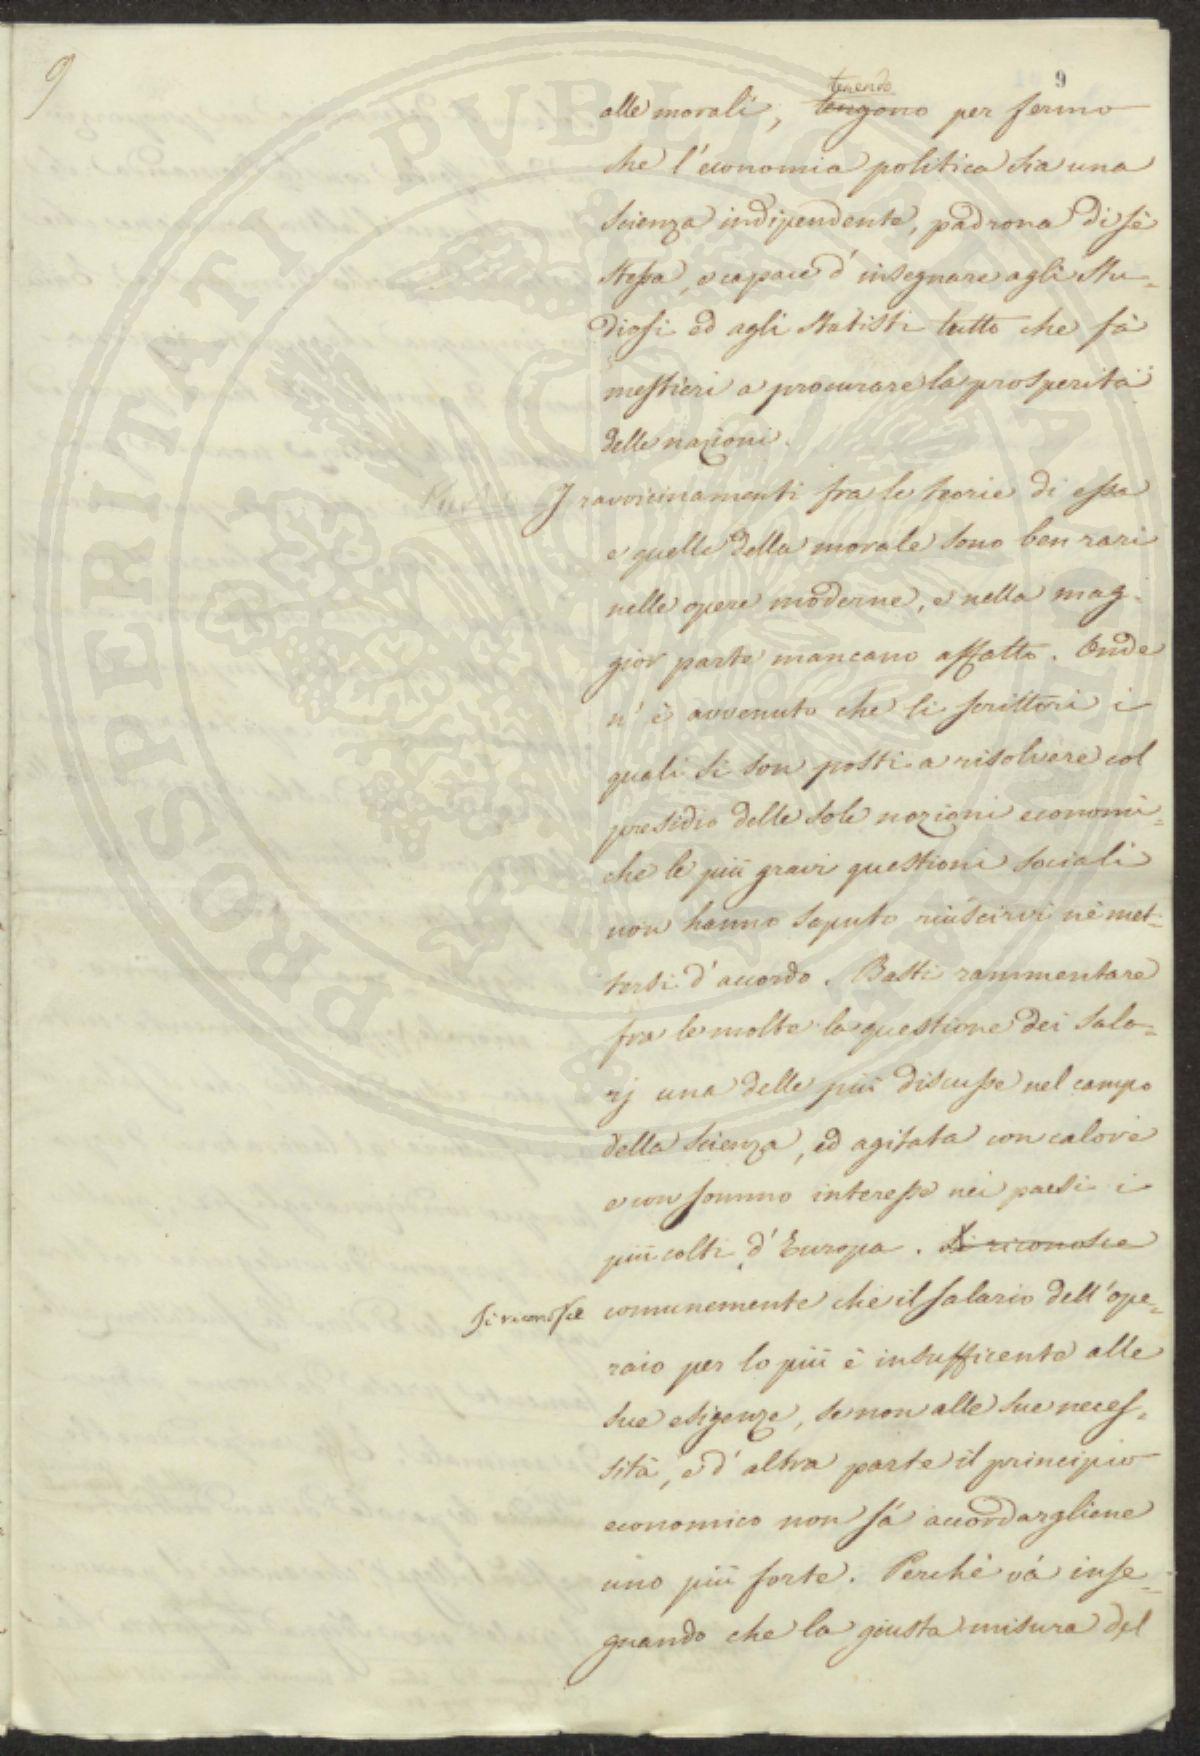 9
9
tenendo
alle morali, tengono per fermo
che l'economia politica sia una
scienza indipendente, padrona di sè
stessa, e capace d'insegnare agli stu=
diosi ed agli statisti tutto che fà
mestieri a procurare la prosperità
delle nazioni.
I ravvicinamenti fra le teorie di essa
e quelle della morale sono ben rari
nelle opere moderne, e nella mag-
gior parte mancano affatto. Onde
n'è avvenuto che li scrittori i
quali si son posti a risolvere col
presidio delle sole nozioni economi=
che le più gravi questioni sociali
non hanno saputo riuscirvi nè met-
tersi d'accordo. Basti rammentare
fra le molte la questione dei sala=
rj una delle più discusse nel campo
della scienza, ed agitata con calore
e con sommo interesse nei paesi i
più colti d'Europa. Si riconosce
Si riconosce comunemente che il salario dell'ope=
raio per lo più è insufficente alle
sue esigenze, se non alle sue neces=
sità, e d'altra parte il principio
economico non sà accordargliene
uno più forte. Perchè và inse=
gnando che la giusta misura del
PROSPERITATI PVBLICAE